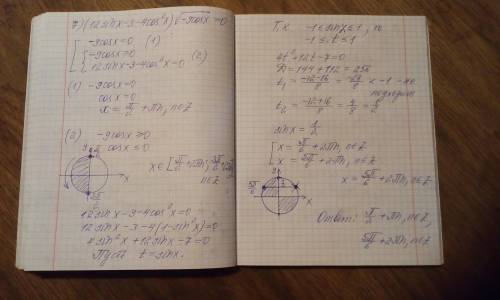 7) (12sinx-3-4cos²x)√-9cosx=0
[ -9cosx=0 (1)
{ -9cosx≥0
12sinx-3-4cos²x=0 (2)
(1) -9cosx=0
cosx=0
x=π/2+πn, n∈Z
(2) -9cosx≥0
cosx≤0
y π/2
x
n∈Z
12sinx-3-4cos²x=0
12sinx-3-4(1-sin²x)=0
4sin²x+12sinx-7=0
Пусть t=sinx.
Т.к. -1≤sinx≤1, то
-1≤t≤1
4t²+12t-7=0
D=144+112=256
t₁=(-12-16)/8= < -1 - не
подходит
t₂=(-12+16)/8=4/8=1/2
sinx=1/2
[ x=π/6+2πn, n∈Z
x=5π/6+2πn, n∈Z
x=5π/6+2πn, n∈Z
5π/6
x
Ответ: π/2+πn, n∈Z,
5π/6+2πn, n∈Z